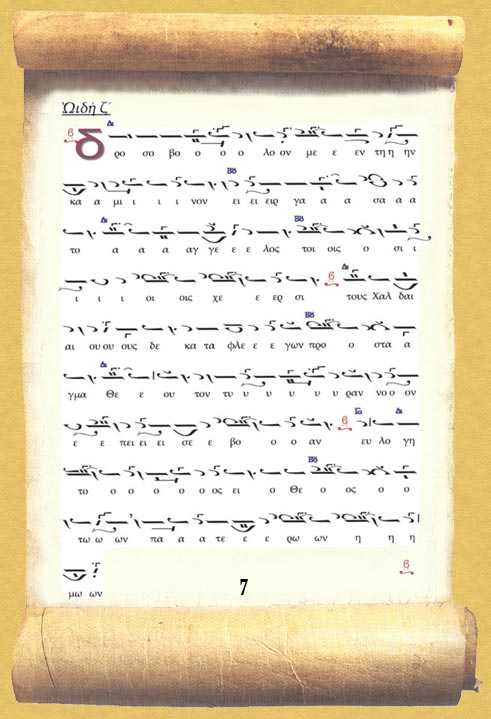 Ὠιδὴ ζ΄
Δι
β δ ρο σο βο ο ο λο ον με ε εν τη η ην
Βδ
κα α μι ι ι νον ει ει ειρ γα α α σα α α
Δι Βδ
το α α α αγ γε ε ε λος τοι οις ο σι ι
β Δι
ι ι ι οι οις χε ε ερ σι τους Χαλ δαι
Βδ
αι ου ου ους δε κα τα φλε ε ε γων προ ο στα α
Δι
γμα Θε ε ου τον τυ υ υ υ υ υ ραν νο ο ον
β Γα Δι
ε ε πει ει ει σε ε βο ο ο αν ευ λο γη
Βδ
το ο ο ο ο ος ει ο Θε ο ος ο ο
τω ω ων πα α α τε ε ε ρω ων η η η
β
μω ων
7